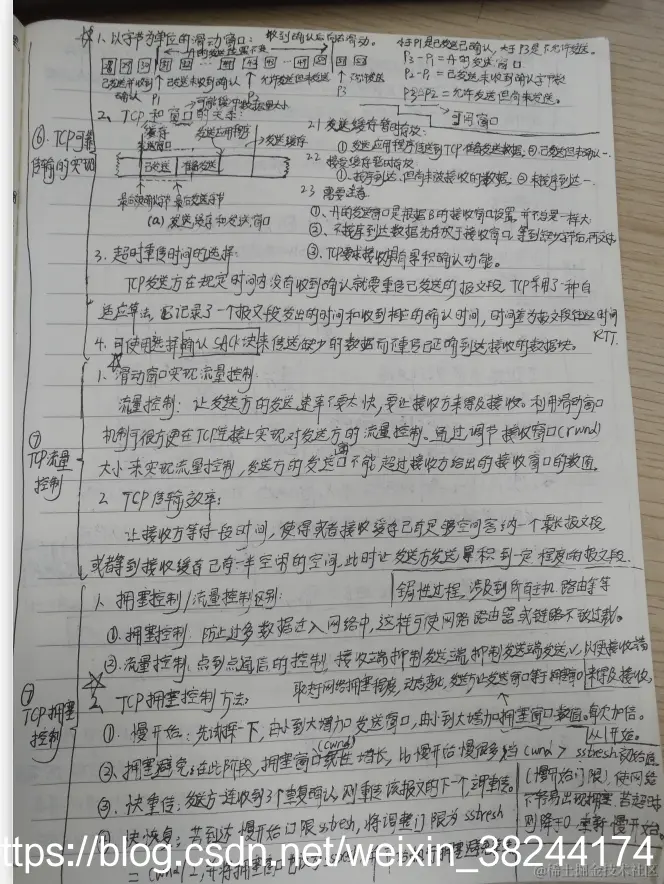 1、以字节为单位的滑动窗口：收到确认后向右滑动。
小于P1是已发送已确认，大于P3是不允许发送。
P3-P1=A的发送窗口
已发送并收到确认 已发送未收到确认 允许发送但尚未发送 不允许发送
P2-P1=已发送未收到确认字节数
P1 P2 P3
P3-P2=允许发送但尚未发送。
可用窗口
⑥、TCP可靠传输的实现
2、TCP和窗口的关系：
发送缓存
已发送
(a) 发送缓存和发送窗口
2.1 发送缓存暂时存放：
①、发送应用程序传送到TCP准备发送数据；②已发送但未确认
2.2 接收缓存暂时存放：
①、按序到达、但尚未被接收的数据；②未按序到达
2.3 需要注意
①、A的发送窗口是根据B的接收窗口设置，并不总是一样大
②、不按序到达数据先存放于接收窗口，等到缺少字节后，再交付
③、TCP要求接收方有累积确认功能。
3. 超时重传时间的选择：
TCP发送方在规定时间内没有收到确认就要重传已发送的报文段，TCP采用了一种自
适应算法，它记录了一个报文段发出的时间和收到相应的确认时间，时间差为报文段往返时间
RTT.
4. 可使用选择确认SACK来传送缺少的数据而不重传已正确到达接收的数据块。
⑦ TCP流量控制
1. 滑动窗口实现流量控制：
流量控制：让发送方的发送速率不要太快，要让接收方来得及接收。利用滑动窗口
机制可很方便在TCP连接上实现对发送方的流量控制。通过调节接收窗口(rwnd)
大小来实现流量控制，发送方的发送窗口不能超过接收方给出的接收窗口的数值。
2. TCP传输效率：
让接收方等待一段时间，使得或者接收缓存已有足够空间容纳一个最长报文段
或者等到接收缓存已有一半空闲的空间。此时让发送方发送累积到一定程度的报文段.
⑦ TCP拥塞控制
1. 拥塞控制/流量控制区别：
全局性过程，涉及到所有主机、路由等等
①. 拥塞控制：防止过多数据进入网络中，这样可使网络路由器或链路不致过载。
②. 流量控制：点到点通信的控制，接收端抑制发送端，抑制发送端发送，以便接收端
来得及接收。
取决网络拥塞程度，动态变化，发送方让发送窗口等于拥塞窗口
2. TCP拥塞控制方法：
①. 慢开始：先试探一下，由小到大增加发送窗口，由小到大增加拥塞窗口数值。每次加倍。
从1开始。
(cwnd)
②. 拥塞避免：在此阶段，拥塞窗口线性增长，比慢开始慢很多，当cwnd > sstresh初始值
(慢开始门限)，使网络
不容易出现拥塞，若超时
则降于0，重新慢开始
③. 快重传：发送方连收到3个重复确认，则重传该报文的下一个，立即重传。
快恢复：若到达慢开始门限sstresh，将调整门限为sstresh
= cwnd/2，并将拥塞窗口
https://blog.csdn.net/weixin_38244174
@稀土掘金技术社区